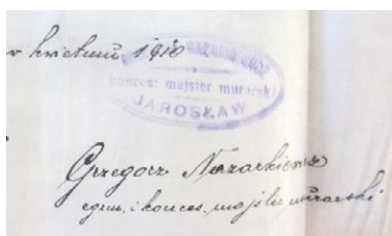 w kwietniu 1910
konces. majster murarski
JAROSŁAW
Grzegorz Nazarkiewicz
egzm. i konces. majster murarski